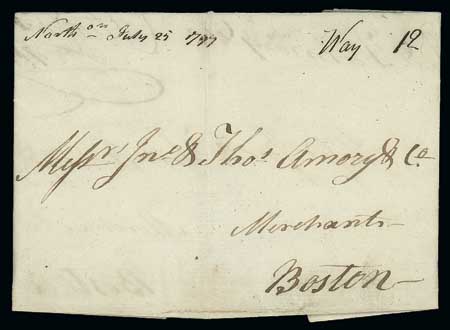 North on July 25 1797 Way 12
Messrs Jno & Thos Amory & Co
Merchants
Boston